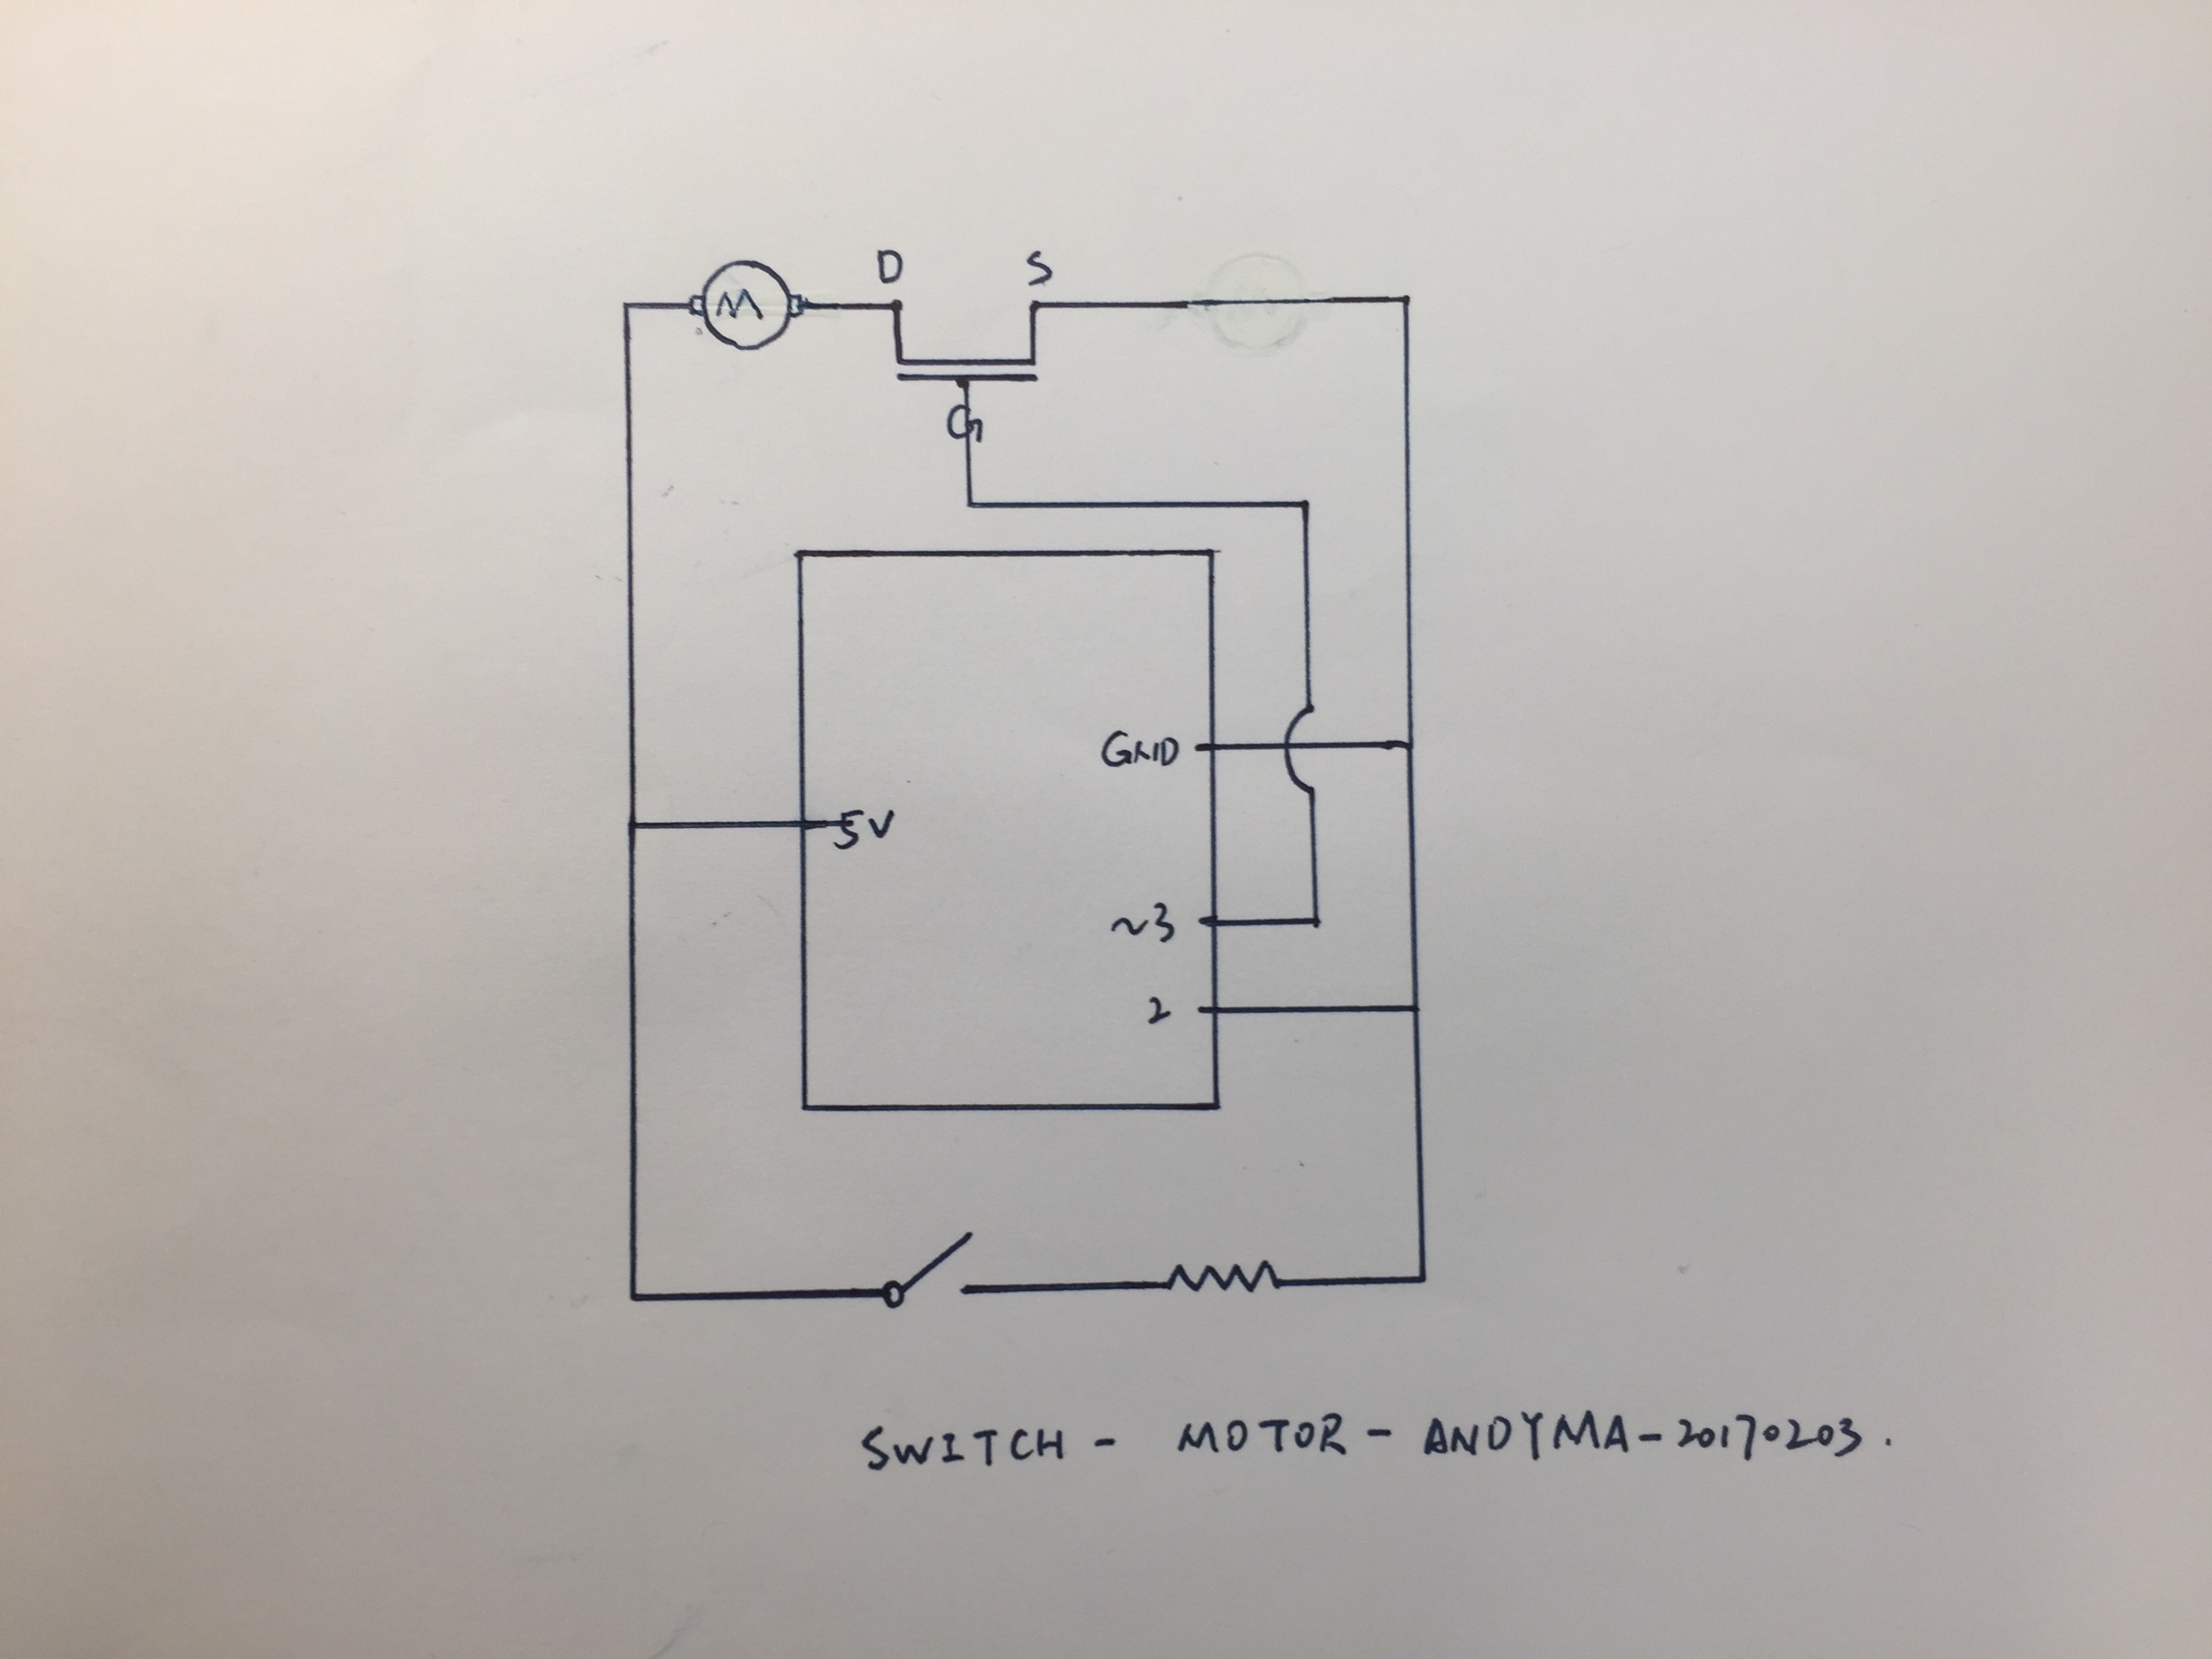 D S
M
G
GND
5V
~3
2
SWITCH - MOTOR - ANDYMA-20170203.